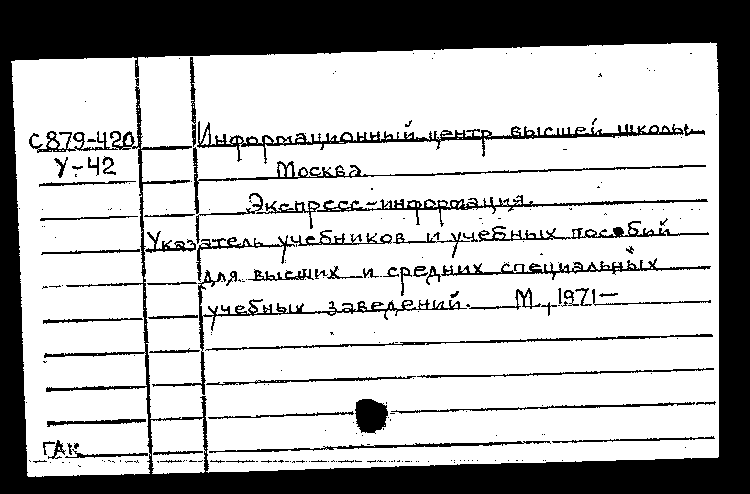 С879-420 Информационный центр высшей школы.
У-42 Москва.
Экспресс-информация.
Указатель учебников и учебных пособий
для высших и средних специальных
учебных заведений. М., 1971—
ГАК